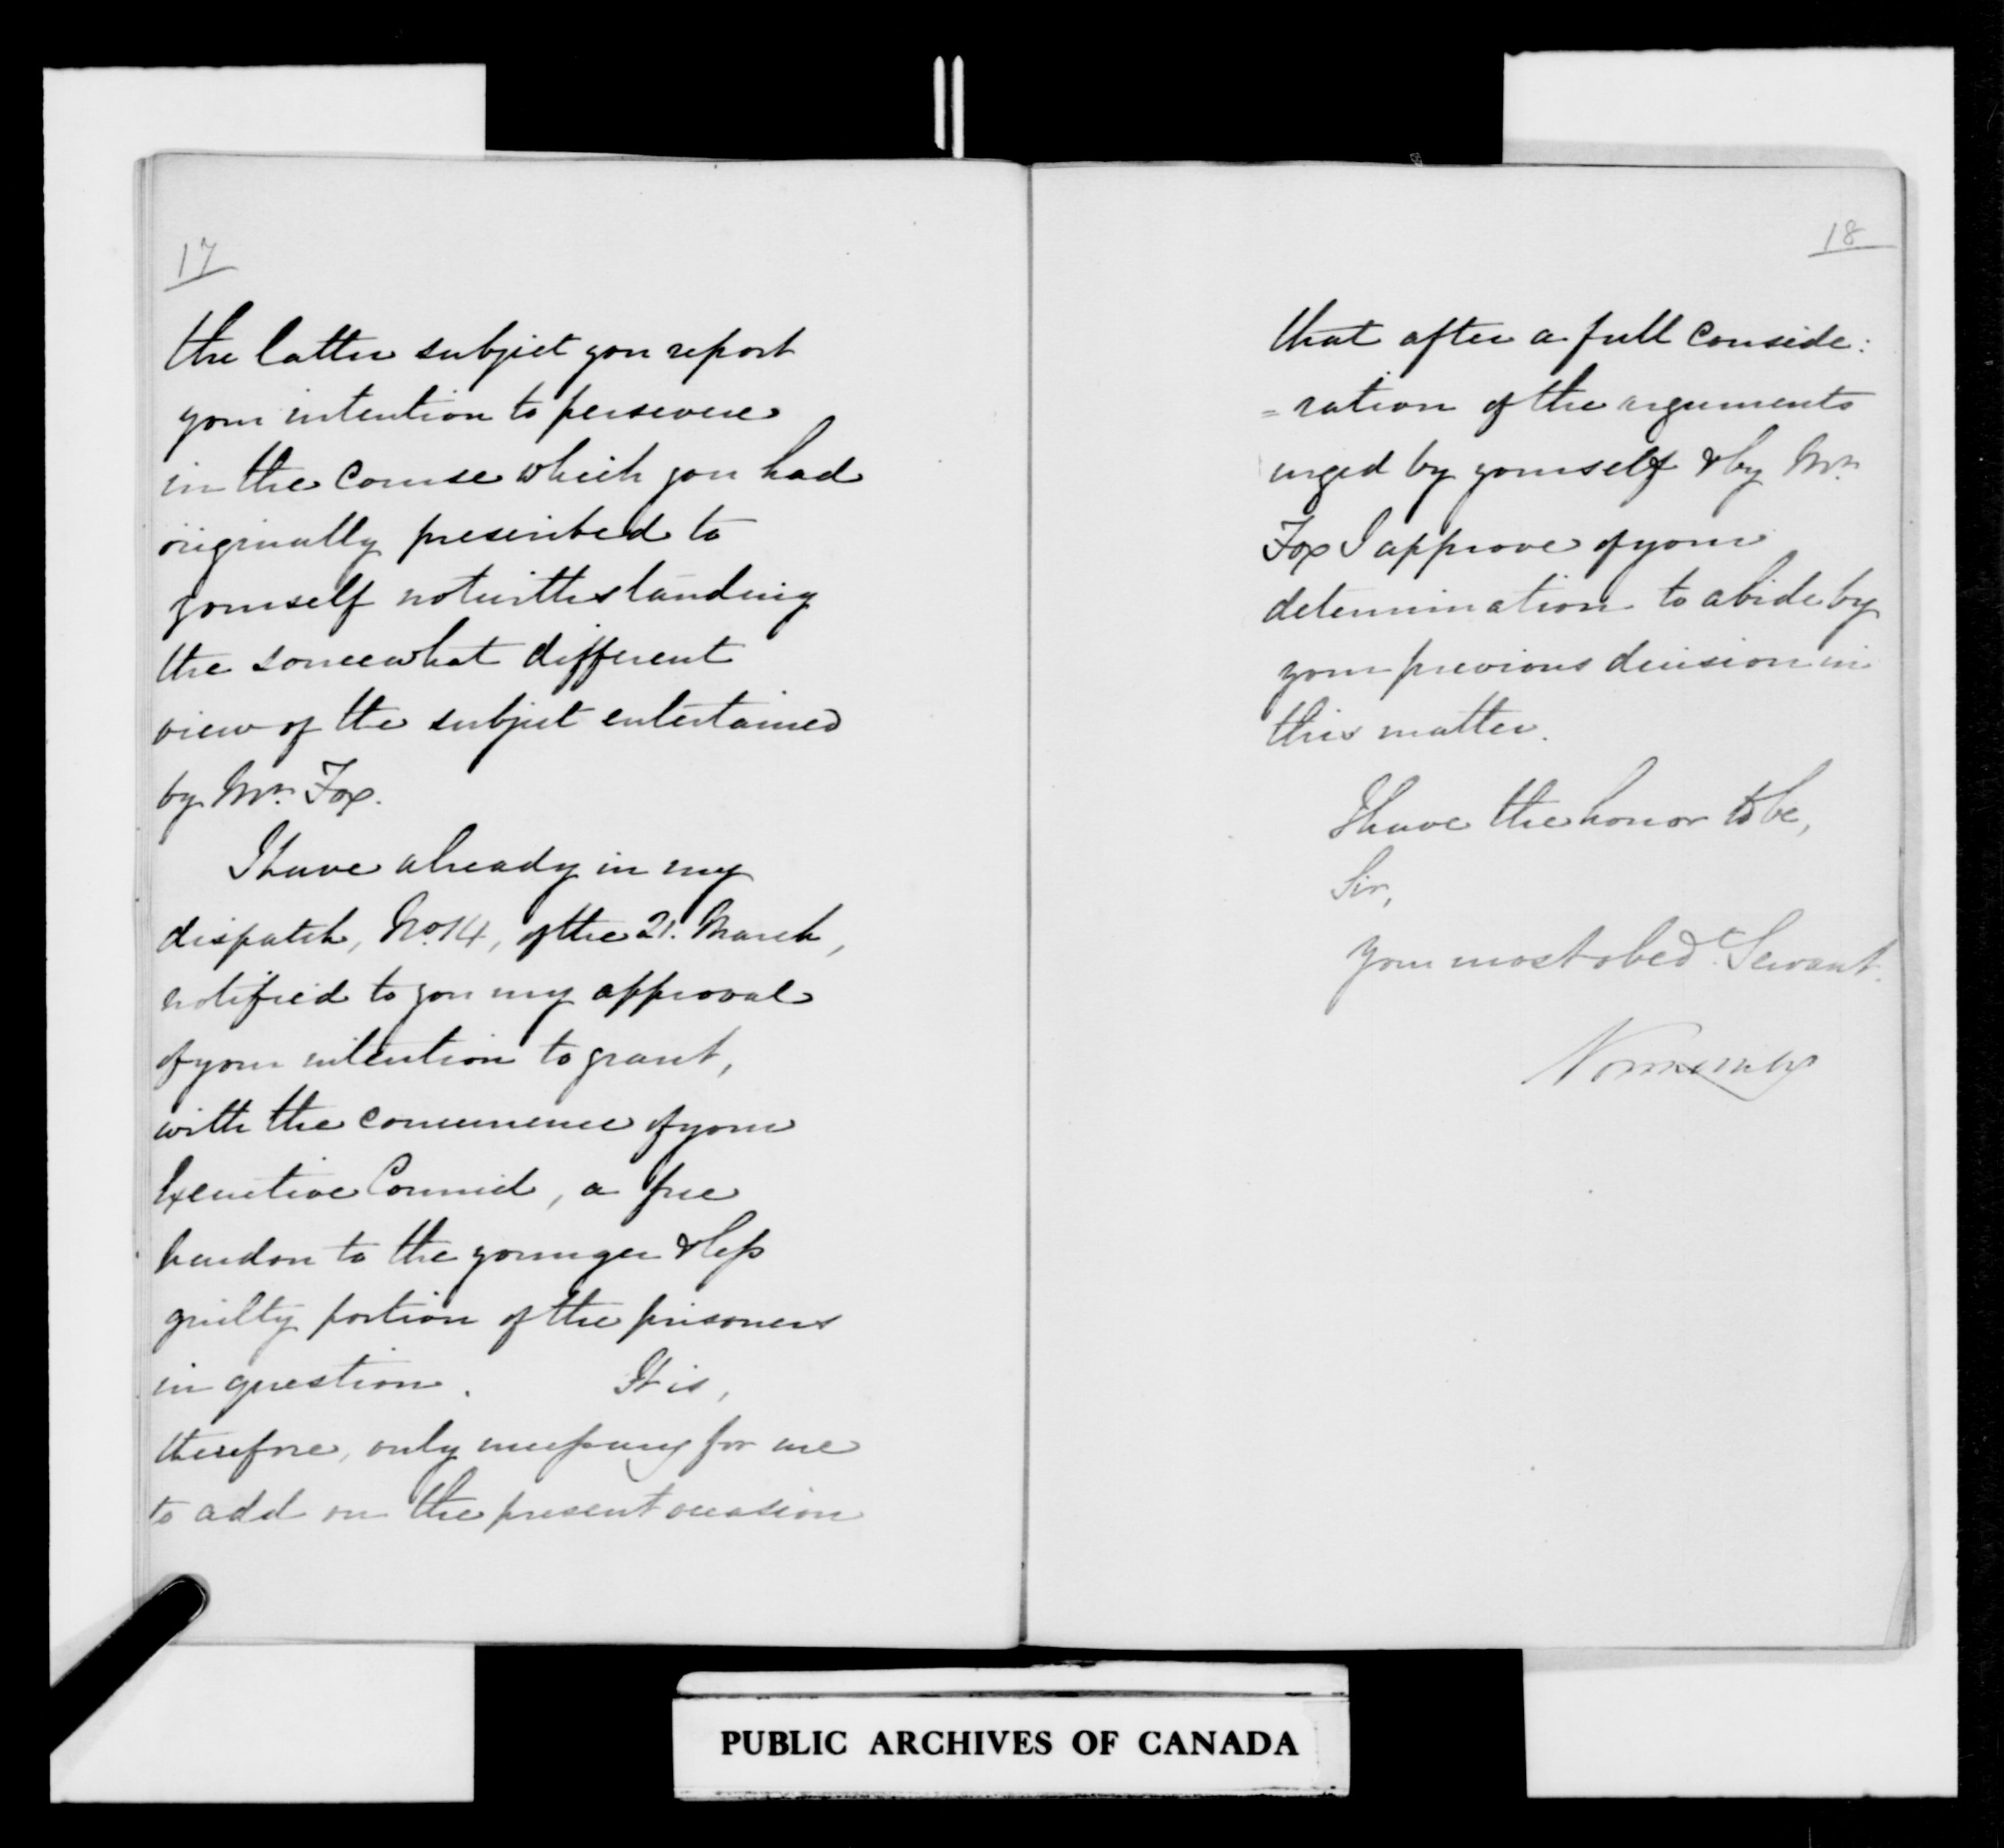 17
the latter subject you report
your intention to persevere
in the course which you had
originally prescribed to
yourself notwithstanding
the somewhat different
view of the subject entertained
by Mr. Fox.
I have already in my
dispatch, No. 14, of the 21. March,
notified to you my approval
of your intention to grant,
with the concurrence of your
Executive Council, a free
pardon to the younger & less
guilty portion of the prisoners
in question. It is,
therefore, only necessary for me
to add on the present occasion
18
that after a full conside:
=ration of the arguments
urged by yourself & by Mr.
Fox I approve of your
determination to abide by
your previous decision in
this matter.
I have the honor to be,
Sir,
your most obed. Servant.
Normanby
PUBLIC ARCHIVES OF CANADA